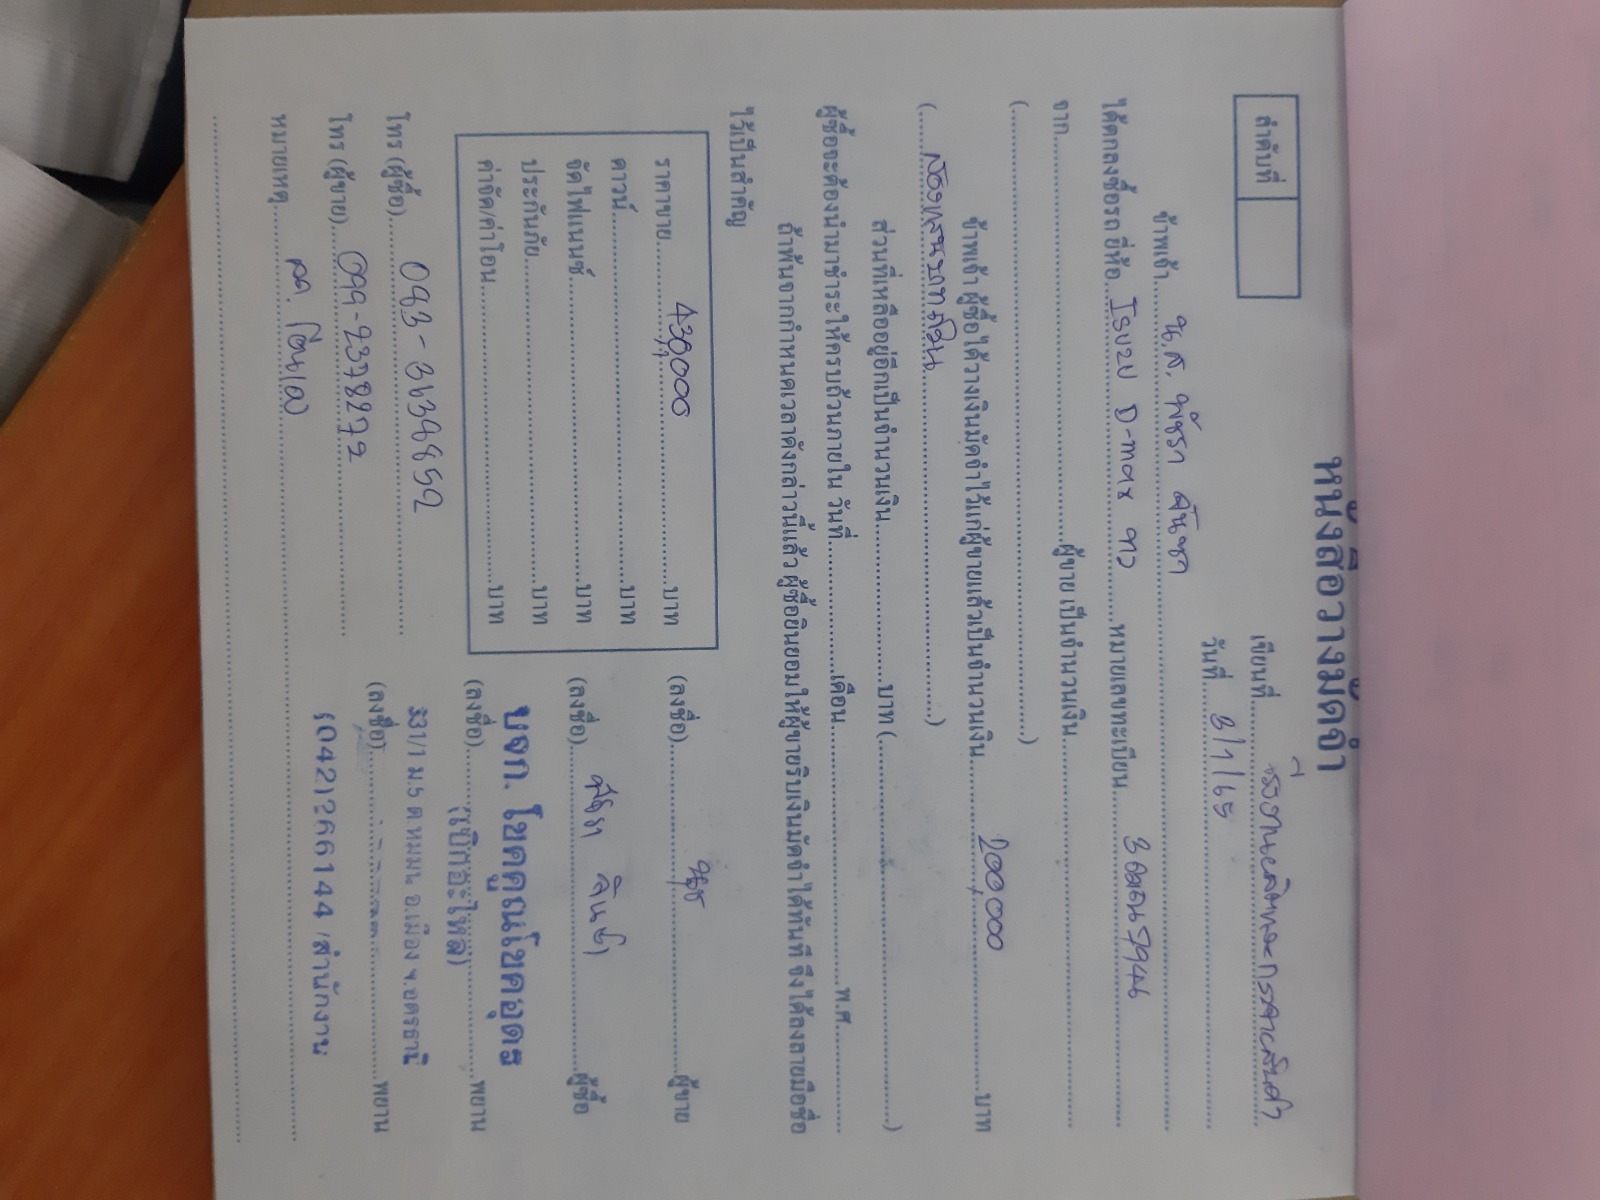 หนังสือวางมัดจำ
ลำดับที่
เขียนที่
วันที่ 8/1/65
ข้าพเจ้า น.ส. พัชรา
ได้ตกลงซื้อรถ ยี่ห้อ Isuzu D-max ขาว หมายเลขทะเบียน
จาก ผู้ขาย เป็นจำนวนเงิน
( )
ข้าพเจ้า ผู้ซื้อ ได้วางเงินมัดจำไว้แก่ผู้ขายแล้วเป็นจำนวนเงิน 200,000 บาท
( สองแสนบาทถ้วน )
ส่วนที่เหลืออยู่อีกเป็นจำนวนเงิน บาท ( )
ผู้ซื้อจะต้องนำมาชำระให้ครบถ้วนภายใน วันที่ เดือน พ.ศ.
ถ้าพ้นจากกำหนดเวลาดังกล่าวนี้แล้ว ผู้ซื้อยินยอมให้ผู้ขายริบเงินมัดจำได้ทันที จึงได้ลงลายมือชื่อ
ไว้เป็นสำคัญ
ราคาขาย 430,000 บาท
ดาวน์ บาท
จัดไฟแนนซ์ บาท
ประกันภัย บาท
ค่าจัด/ค่าโอน บาท
(ลงชื่อ) ผู้ขาย
(ลงชื่อ) พัชรา ผู้ซื้อ
(ลงชื่อ) พยาน
(ลงชื่อ) พยาน
บจก. โชคคูณโชคอุดร
(เบิกอะไหล่)
331/1 ม.5 ต.หมูม่น อ.เมือง จ.อุดรธานี
(042)266144 /สำนักงาน
โทร (ผู้ซื้อ)
โทร (ผู้ขาย)
หมายเหตุ